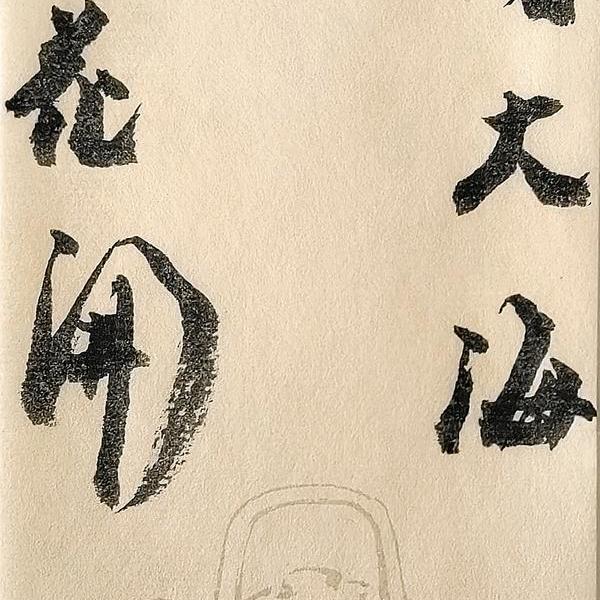 大海
花開